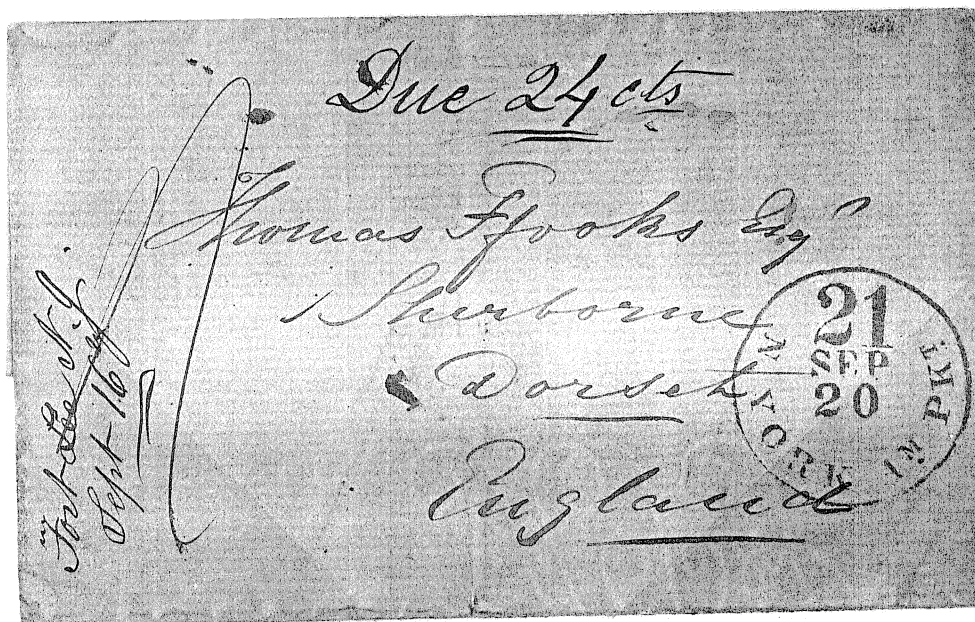 Due 24 cts
Thomas Ffooks Esqr
Sherborne
Dorset
England
Fort Lee N.J.
Sept 16
21
SEP
20
N. YORK AM. PKT.